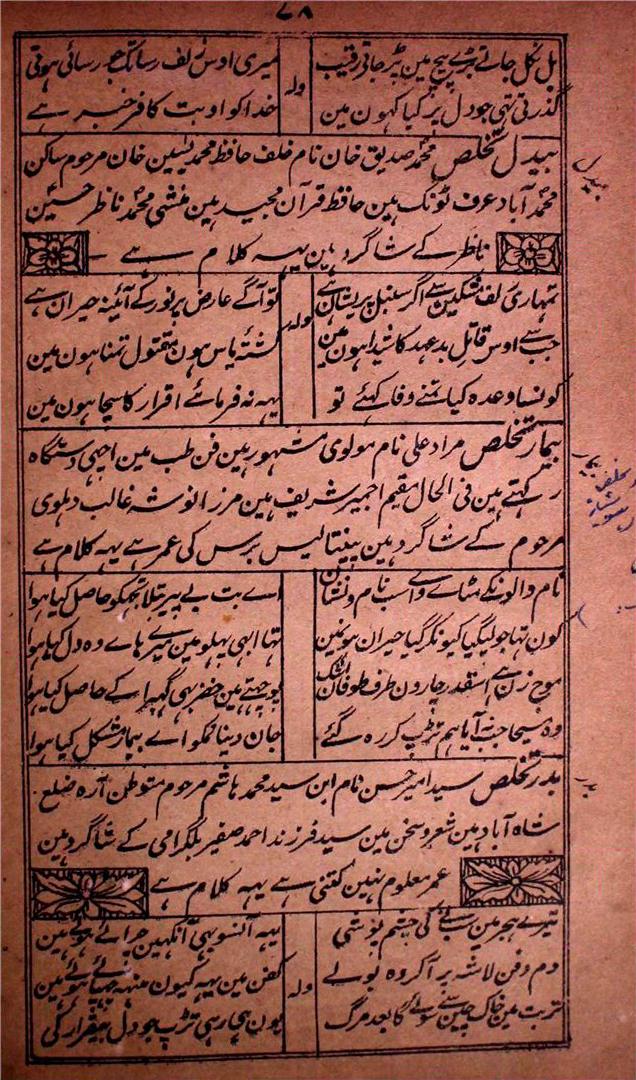 ۷۸
بل نکل جاتے بڑے پیچ مین پڑ جاتی رقیب میری اوس زلف رسا تک جو رسائی ہوتی
ولہ
گذرتی تہی جو دل پر کیا کہون مین خدا کو او بت کافر خبر ہے
بیدل تخلص محمد صدیق خان نام خلف حافظ محمد یٰسین خان مرحوم ساکن
بیدل
محمد آباد عرف ٹونک ہین حافظ قرآن مجید ہین منشی محمد ناظر حسین
ناظر کے شاگرد ہین یہہ کلام ہے
تمہاری زلف مشکین سے اگر سنبل پریشان ہے تو آگے عارض پر نور کے آئینہ حیران ہے
ولہ
جب سے اوس قاتل بد عہد کا شیدا ہون مین کشتۂ یاس ہون مقتول تمنا ہون مین
کونسا وعدہ کیا تمنے وفا کہئے تو یہہ نہ فرمائے اقرار کا سچا ہون مین
بیمار تخلص مراد علی نام مولوی مشہور ہین فن طب مین اچہی دستگاہ
بیمار
رکہتے ہین فی الحال مقیم اجمیر شریف ہین مرزا نوشہ غالب دہلوی
مرحوم کے شاگرد ہین پینتالیس برس کی عمر ہے یہہ کلام ہے
نام والونکے مٹاے واے سب نام و نشان اے بت بے پیر بتلا تجہکو حاصل کیا ہوا
کون تہا جو لیگیا کیونکر گیا حیران ہون مین تہا ابہی پہلو مین میرے ہاے وہ دل کیا ہوا
موج زن ہے اسقدر چارون طرف طوفان اشک پوچہتے ہین خضر بہی گہبرا کے حاصل کیا ہوا
وہ مسیحا جب نہ آیا ہم تڑپ کر رہ گئے جان دینا تمکو اے بیمار مشکل کیا ہوا
بدر تخلص سید امیر حسن نام ابن سید محمد ہاشم مرحوم متوطن آرہ ضلع
بدر
شاہ آباد ہین شعر و سخن مین سید فرزند احمد صفیر بلگرامی کے شاگرد ہین
عمر معلوم نہین کتنی ہے یہہ کلام ہے
تیرے ہجر مین سب نے کی چشم پوشی یہہ آنسو بہی آنکہین چرائے ہوئے ہین
دم دفن لاشہ پر آکر وہ بولے کفن مین یہہ کیون منہہ چہپائے ہوئے ہین
ولہ
تربت مین خاک چین سے سوئے گا بعد مرگ یون ہی رہی تڑپ جو دل بیقرار کی